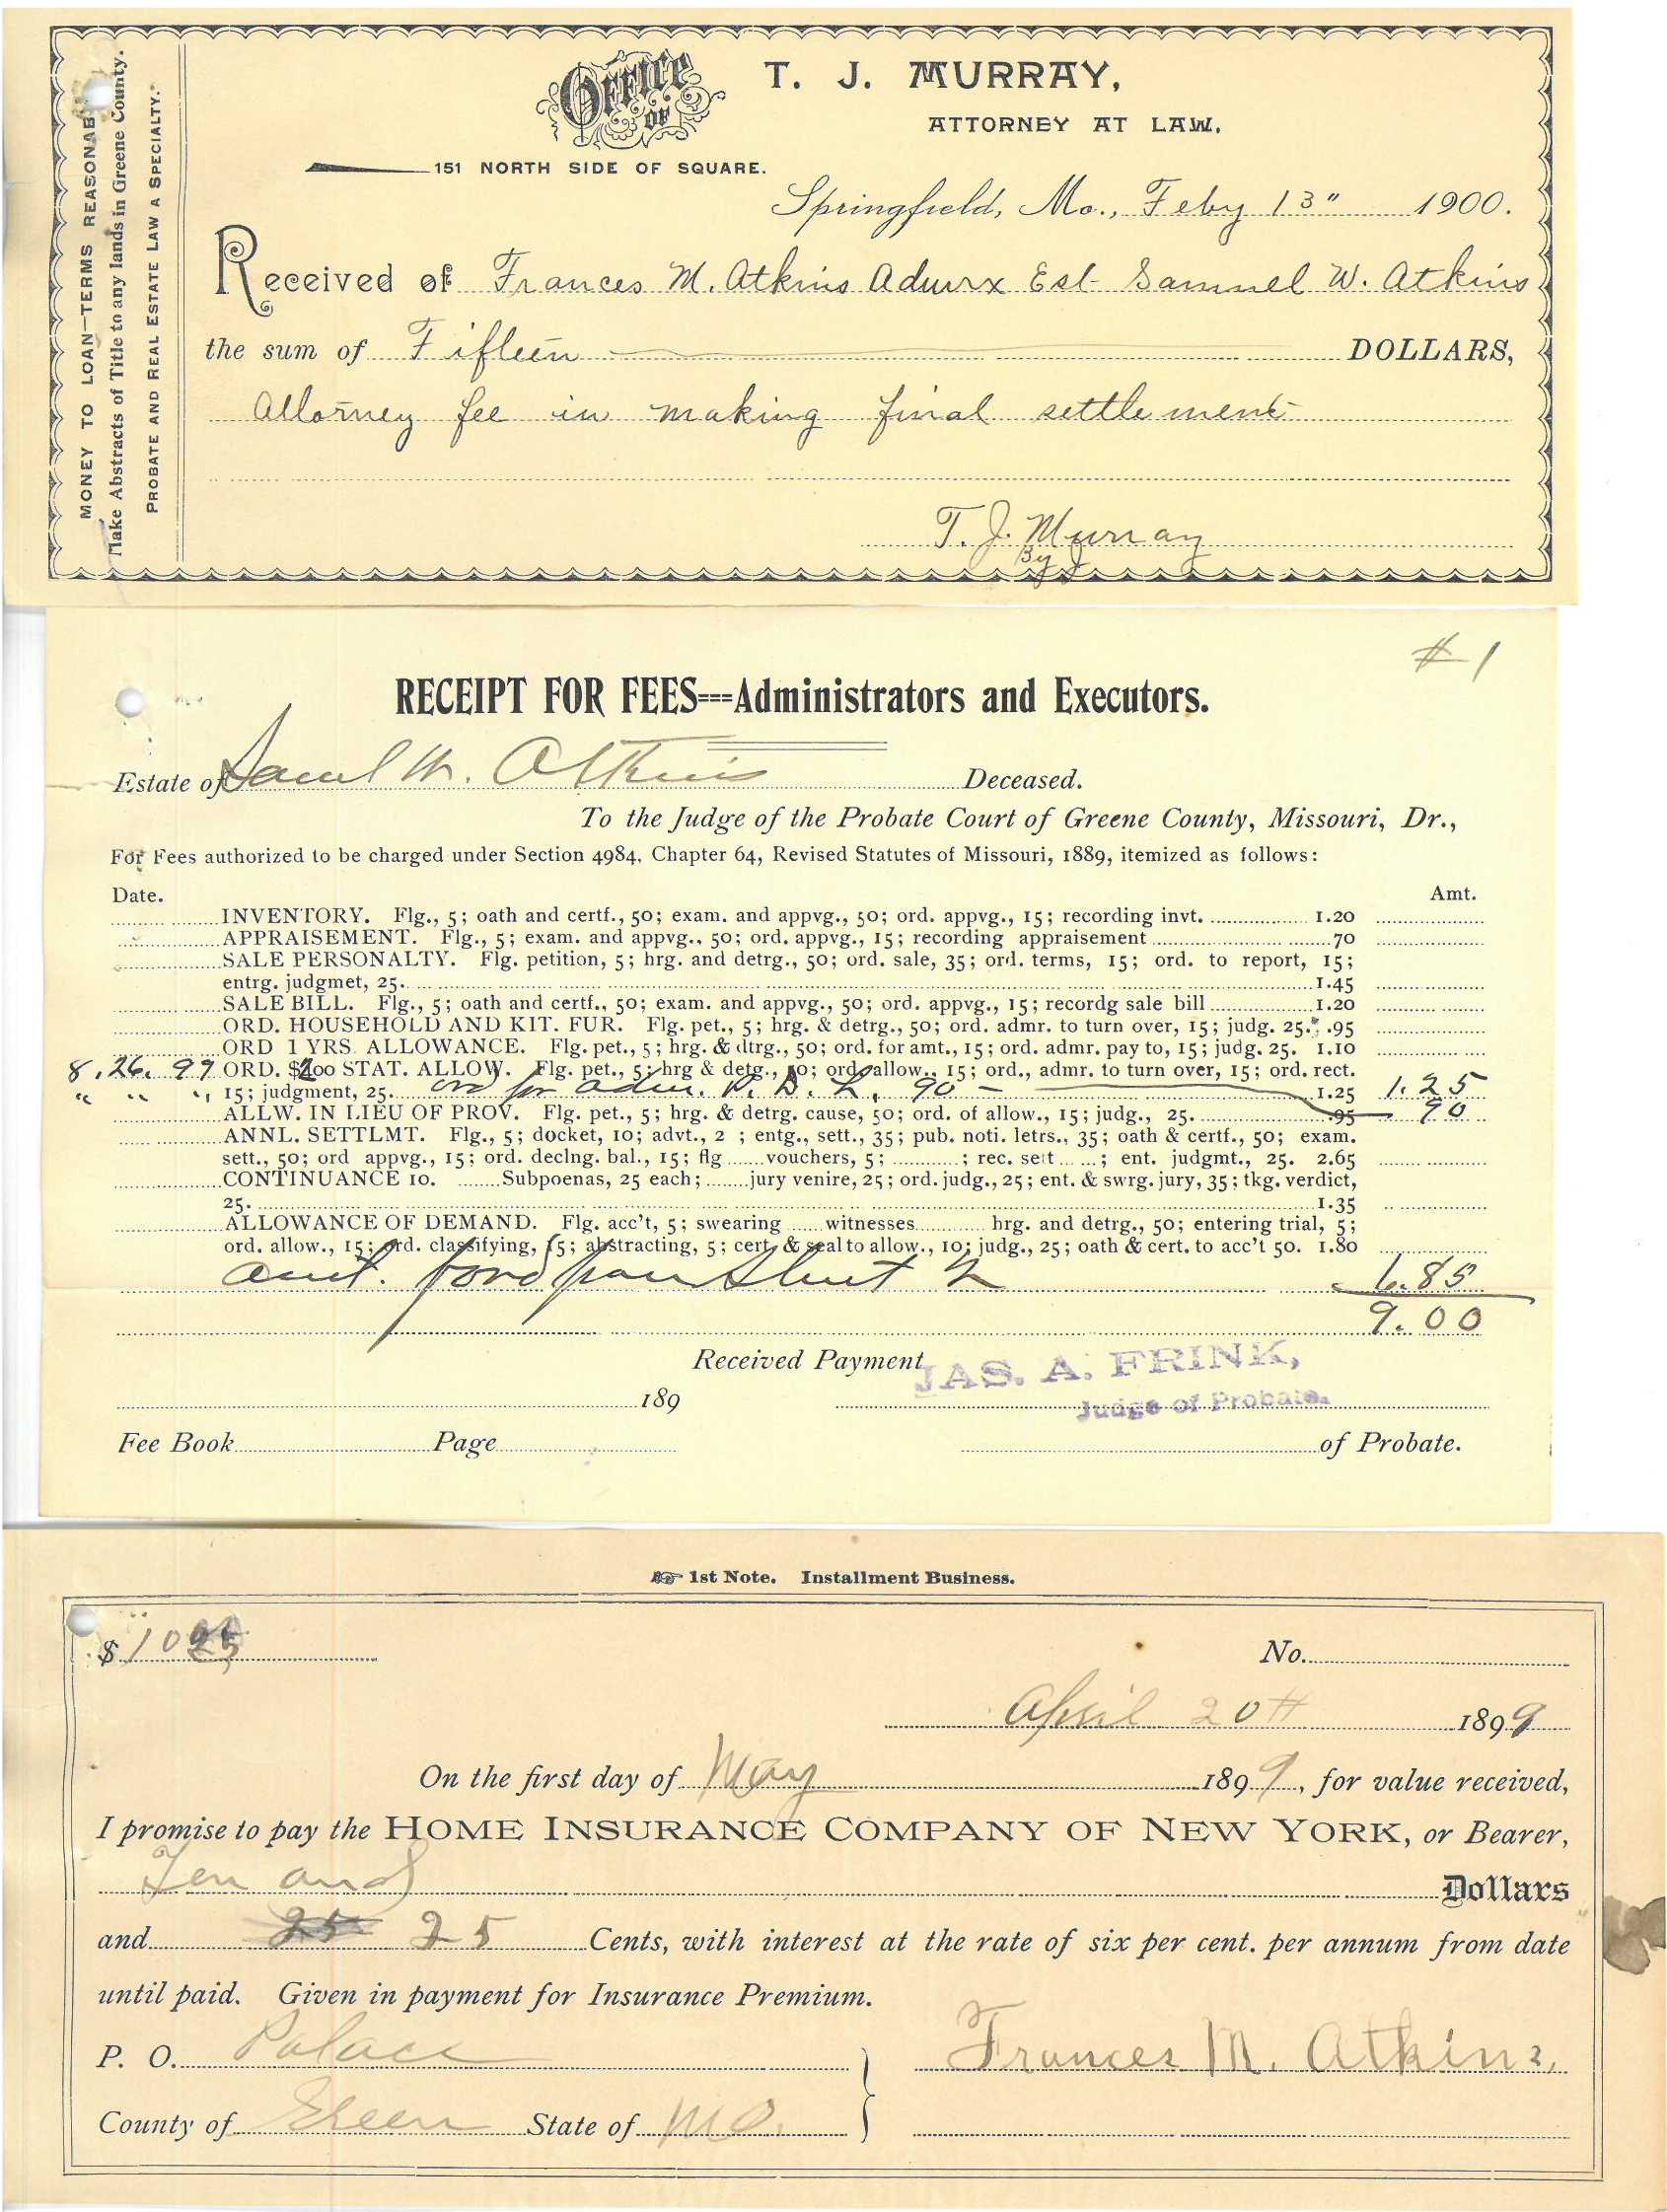 MONEY TO LOAN—TERMS REASONAB
Make Abstracts of Title to any lands in Greene County.
PROBATE AND REAL ESTATE LAW A SPECIALTY.
OFFICE OF T. J. MURRAY,
ATTORNEY AT LAW,
151 NORTH SIDE OF SQUARE.
Springfield, Mo., Feby 13" 1900.
Received of Frances M. Atkins Admrx Est Samuel W. Atkins
the sum of Fifteen DOLLARS,
Attorney fee in making final settlement
T. J. Murray
By J
#1
RECEIPT FOR FEES===Administrators and Executors.
Estate of Saml W. Atkins Deceased.
To the Judge of the Probate Court of Greene County, Missouri, Dr.,
For Fees authorized to be charged under Section 4984, Chapter 64, Revised Statutes of Missouri, 1889, itemized as follows:
Date. Amt.
INVENTORY. Flg., 5; oath and certf., 50; exam. and appvg., 50; ord. appvg., 15; recording invt. 1.20
APPRAISEMENT. Flg., 5; exam. and appvg., 50; ord. appvg., 15; recording appraisement 70
SALE PERSONALTY. Flg. petition, 5; hrg. and detrg., 50; ord. sale, 35; ord. terms, 15; ord. to report, 15;
entrg. judgmet, 25. 1.45
SALE BILL. Flg., 5; oath and certf., 50; exam. and appvg., 50; ord. appvg., 15; recordg sale bill 1.20
ORD. HOUSEHOLD AND KIT. FUR. Flg. pet., 5; hrg. & detrg., 50; ord. admr. to turn over, 15; judg. 25. .95
ORD 1 YRS. ALLOWANCE. Flg. pet., 5; hrg. & dtrg., 50; ord. for amt., 15; ord. admr. pay to, 15; judg. 25. 1.10
8. 26. 99 ORD. $200 STAT. ALLOW. Flg. pet., 5; hrg & detg., 50; ord. allow., 15; ord., admr. to turn over, 15; ord. rect.
" " " 15; judgment, 25. ord for adm. P. D. L. 90 — 1.25 1.25
ALLW. IN LIEU OF PROV. Flg. pet., 5; hrg. & detrg. cause, 50; ord. of allow., 15; judg., 25. .95 90
ANNL. SETTLMT. Flg., 5; docket, 10; advt., 2 ; entg., sett., 35; pub. noti. letrs., 35; oath & certf., 50; exam.
sett., 50; ord appvg., 15; ord. declng. bal., 15; flg vouchers, 5; ; rec. sett ; ent. judgmt., 25. 2.65
CONTINUANCE 10. Subpoenas, 25 each; jury venire, 25; ord. judg., 25; ent. & swrg. jury, 35; tkg. verdict,
25. 1.35
ALLOWANCE OF DEMAND. Flg. acc't, 5; swearing witnesses hrg. and detrg., 50; entering trial, 5;
ord. allow., 15; ord. classifying, 15; abstracting, 5; cert. & seal to allow., 10; judg., 25; oath & cert. to acc't 50. 1.80
amt. ford from Sheet 2 6.85
9.00
Received Payment JAS. A. FRINK,
189 Judge of Probate.
Fee Book Page of Probate.
1st Note. Installment Business.
$ 10 25 No.
April 20th 1899
On the first day of May 1899, for value received,
I promise to pay the HOME INSURANCE COMPANY OF NEW YORK, or Bearer,
Ten and Dollars
and 25 25 Cents, with interest at the rate of six per cent. per annum from date
until paid. Given in payment for Insurance Premium.
P. O. Palace Frances M. Atkins,
County of Green State of MO.